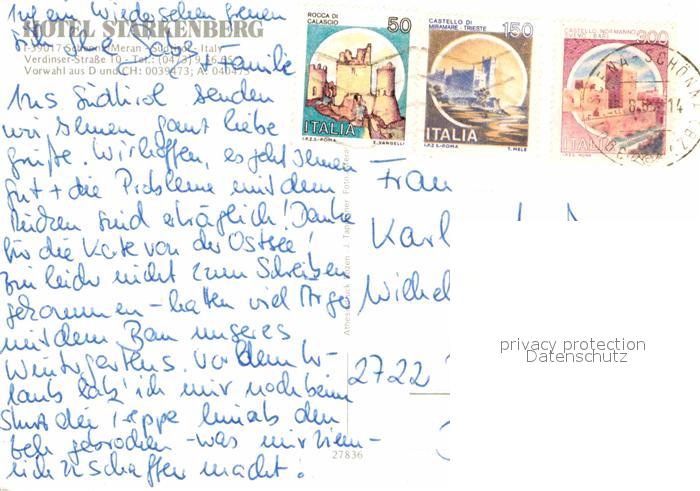 HOTEL STARKENBERG
I-39017 Schenna/Meran - Südtirol - Italy
Verdinser-Straße 10 - Tel.: (0473) 9
Vorwahl aus D und CH: 0039473; A: 040473
Familie
Aus Südtirol senden
wir Ihnen ganz liebe
Grüße. Wir hoffen, es geht Ihnen
gut + die Probleme mit dem
Rücken sind erträglich! Danke
für die Karte von der Ostsee!
Bin leider nicht zum Schreiben
gekommen - hatten viel Ärger
mit dem Bau unseres
Wintergartens. Vor dem Ur-
laub hab' ich mir noch beim
Sturz der Treppe hinab den
geb rochen - was mir ziem-
lich zu schaffen macht!
Auf ein Wiedersehen freuen
ROCCA DI
CALASCIO
50
ITALIA
I.P.Z.S. - ROMA
E. VANGELLI
CASTELLO DI
MIRAMARE - TRIESTE
150
ITALIA
I.P.Z.S. - ROMA
T. MELE
CASTELLO NORMANNO
300
ITALIA
Frau
Karl
Wilhel
2722
27836
privacy protection
Datenschutz